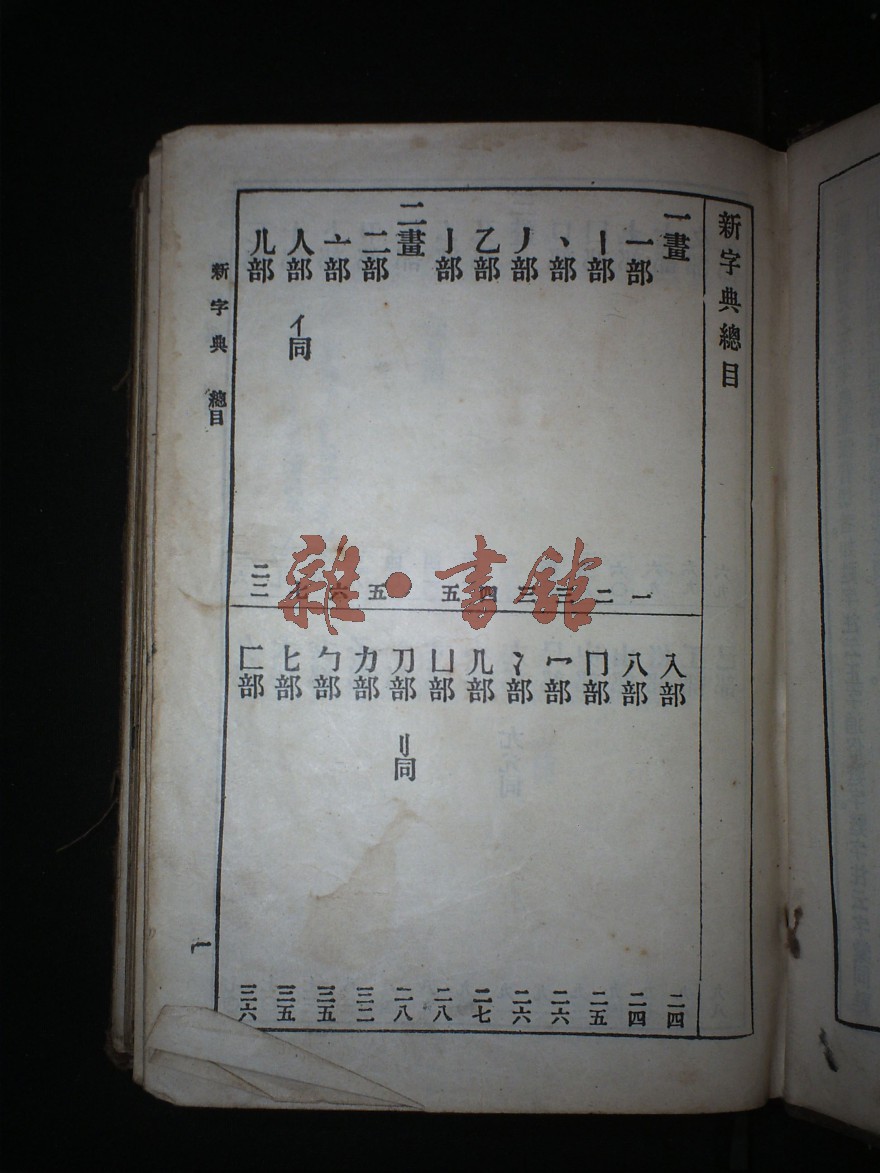 新字典總目
一畫
一部 一
丨部 二
丶部 三
丿部 三
乙部 四
亅部 五
二畫
二部 五
亠部 六
人部 亻同 七
儿部 二二
入部 二四
八部 二四
冂部 二五
冖部 二六
冫部 二六
几部 二七
凵部 二八
刀部 刂同 二八
力部 三二
勹部 三五
匕部 三五
匚部 三六
新字典 總目
一
雜·書館